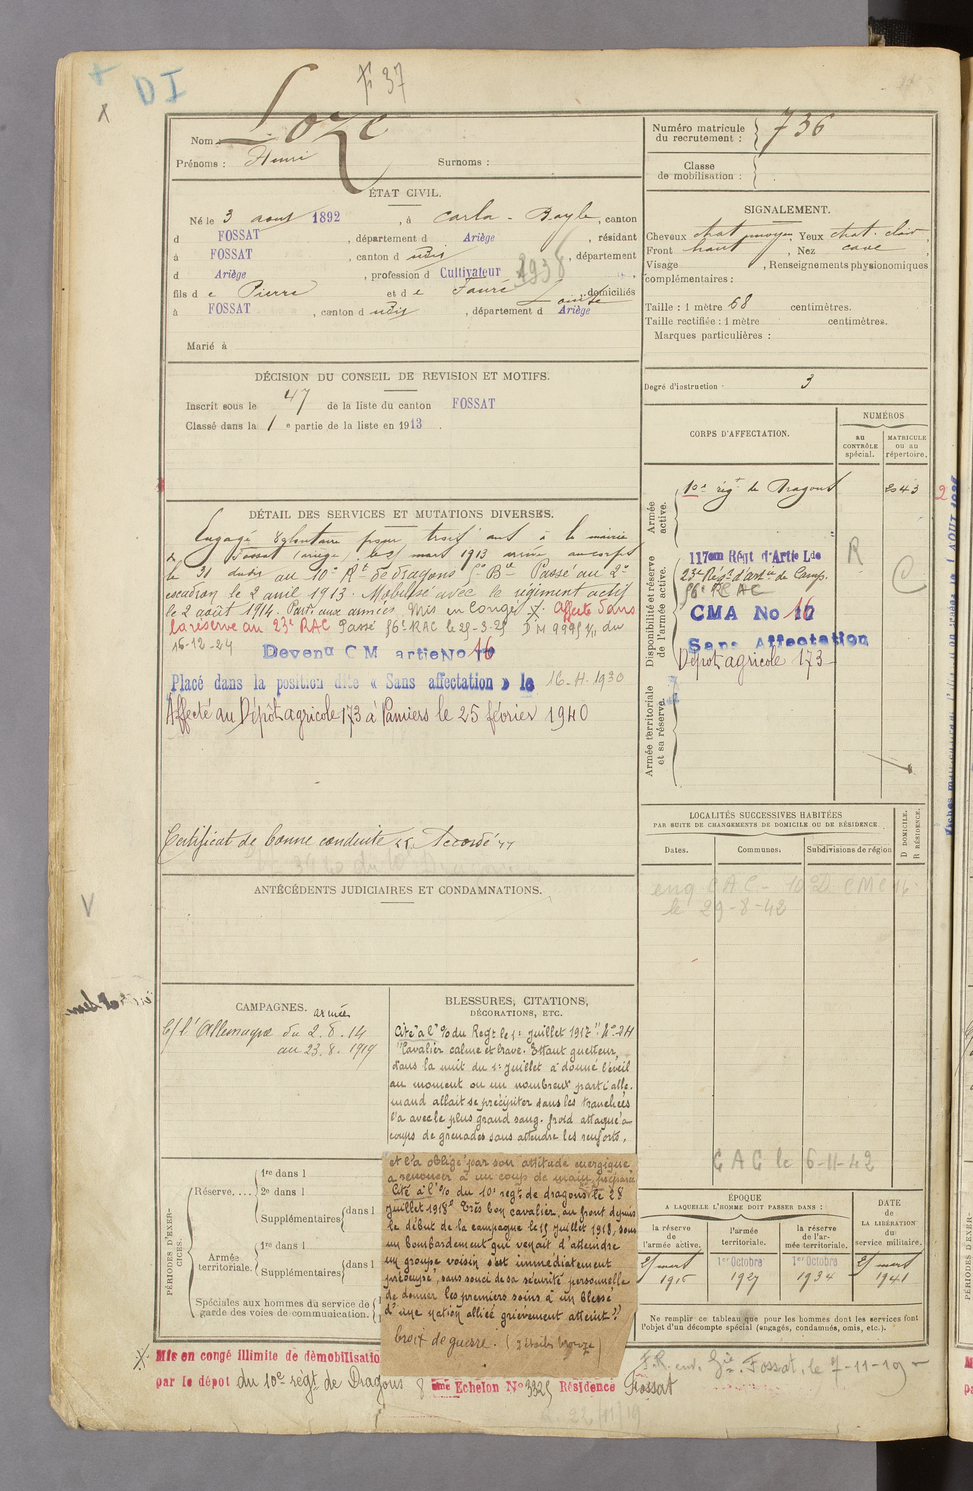 DI
F 37
Nom Loze
Prénoms : Henri Surnoms :
Numéro matricule du recrutement : 736
Classe de mobilisation :
ÉTAT CIVIL.
Né le 3 aout 1892, à Carla-Bayle, canton
d FOSSAT, département d Ariège, résidant
à FOSSAT, canton d udis, département
d Ariège, profession d Cultivateur
fils de Pierre et de Fauré Louise domiciliés
à FOSSAT, canton d udis, département d Ariège
Marié à
SIGNALEMENT.
Cheveux chat moyen, Yeux chat. clair,
Front haut, Nez cave
Visage , Renseignements physionomiques
complémentaires :
Taille : 1 mètre 68 centimètres.
Taille rectifiée : 1 mètre centimètres.
Marques particulières :
Degré d'instruction 3
DÉCISION DU CONSEIL DE REVISION ET MOTIFS.
Inscrit sous le 47 de la liste du canton FOSSAT
Classé dans la 1e partie de la liste en 1913.
CORPS D'AFFECTATION.
NUMÉROS
au CONTRÔLE spécial.
MATRICULE ou au répertoire.
Armée active.
10e régt de Dragons 2043
Disponibilité et réserve de l'armée active.
117em Régt d'Artie Lde
23e Régt d'artie de Camp.
56e RCAC
CMA No 16
Sans Affectation
Dépot agricole 173
R
C
2
Armée territoriale et sa réserve.
DÉTAIL DES SERVICES ET MUTATIONS DIVERSES.
Engagé volontaire pour trois ans à la mairie
de Fossat (ariège) le 21 mars 1913 arrivé au corps
le 31 dudit au 10e Rt de dragons Son Be Passé au 2e
escadron le 2 avril 1913. Mobilisé avec le régiment actif
le 2 août 1914. Parti aux armées. Mis en congé X. Affecté dans
la réserve au 23e RAC Passé 56e RAC le 25-3-25 D M 9995 1/11 du
16-12-24 Devenu CM artie No 16
Placé dans la position dite « Sans affectation » le 16-4-1930
Affecté au Dépôt agricole 173 à Pamiers le 25 février 1940
Certificat de bonne conduite "Accordé"
ANTÉCÉDENTS JUDICIAIRES ET CONDAMNATIONS.
LOCALITÉS SUCCESSIVES HABITÉES
PAR SUITE DE CHANGEMENTS DE DOMICILE OU DE RÉSIDENCE.
Dates. Communes. Subdivisions de région
D DOMICILE.
R RÉSIDENCE.
eng CAC - 10 D CMC 16
le 29-8-42
CAC le 6-11-42
CAMPAGNES.
armée
C/ l'Allemagne du 2.8.14
au 23.8.1919
BLESSURES, CITATIONS,
DÉCORATIONS, ETC.
Cité à l'% du Regt le 1er Juillet 1917 "No 24
"Cavalier calme et brave. Etant guetteur,
dans la nuit du 1er Juillet a donné l'éveil
au moment ou un nombreux parti alle-
mand allait se précipiter dans les tranchées
l'a avec le plus grand sang-froid attaqué à
coups de grenades sans attendre les renforts,
et l'a obligé par son attitude energique
a renoncer à un coup de main préparé
Cité à l'% du 10e regt de dragons le 28
Juillet 1918 "Très bon cavalier, au front depuis
le début de la campagne le 15 Juillet 1918, sous
un bombardement qui venait d'atteindre
un groupe voisin s'est immédiatement
précipité, sans souci de sa sécurité personnelle
de donner les premiers soins à un blessé
d'une nation alliée grièvement atteint"
Croix de guerre. (2 étoiles bronze)
PÉRIODES D'EXERCICES.
Réserve.... 1re dans l
2e dans l
Supplémentaires dans l
Armée territoriale. 1re dans l
Supplémentaires dans l
Spéciales aux hommes du service de
garde des voies de communication.
ÉPOQUE
A LAQUELLE L'HOMME DOIT PASSER DANS :
la réserve de l'armée active.
l'armée territoriale.
la réserve de l'armée territoriale.
DATE de LA LIBÉRATION du service militaire.
21 mars 1916
1er Octobre 1927
1er Octobre 1934
21 mars 1941
Ne remplir ce tableau que pour les hommes dont les services font
l'objet d'un décompte spécial (engagés, condamnés, omis, etc.).
Mis en congé illimité de démobilisatio
par le dépot du 10e régt de Dragons 8 ème Echelon No 3325 Résidence Fossat
F.R. env. Gie Fossat, le 7-11-19
22/11/19